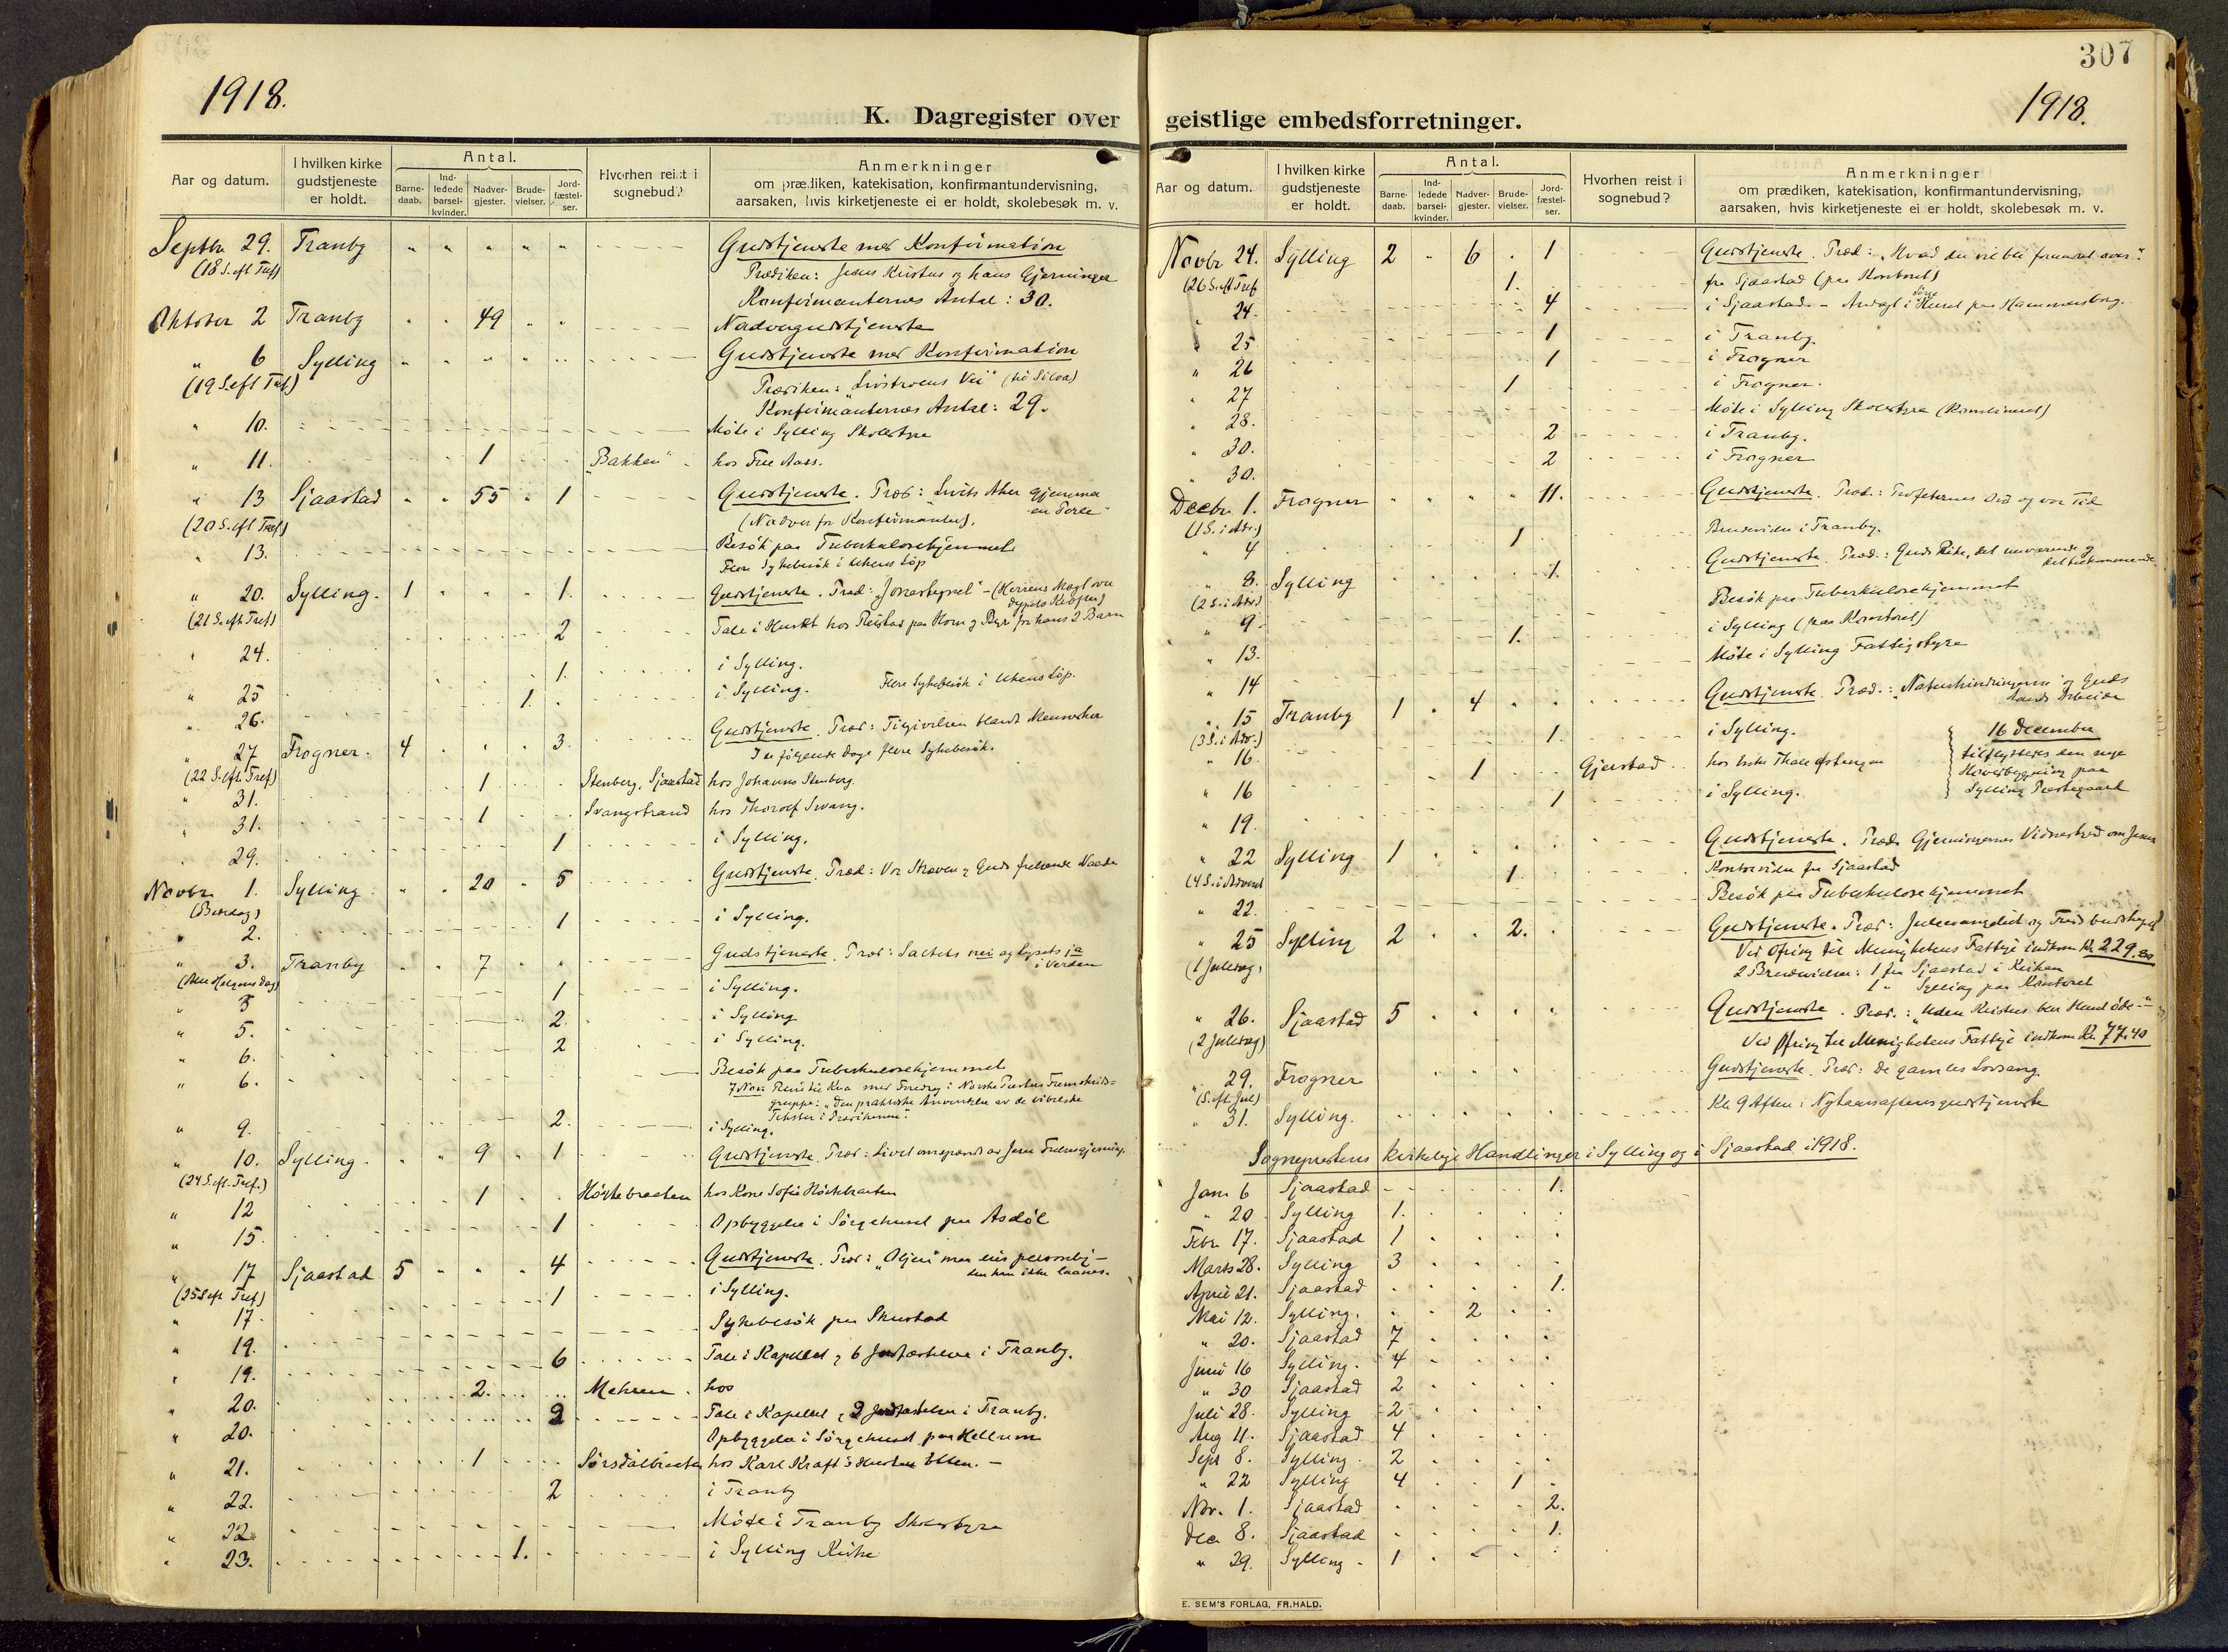 307
1918.
1918.
K. Dagregister over geistlige embedsforretninger.
Aar og datum. I hvilken kirke gudstjeneste er holdt. Antal. Barne-daab. Ind-ledede barsel-kvinder. Nadver-gjester. Brude-vielser. Jord-fæstel-ser. Hvorhen reist i sognebud? Anmerkninger om prædiken, katekisation, konfirmantundervisning, aarsaken, hvis kirketjeneste ei er holdt, skolebesøk m. v.
Septbr 29. Tranby " " " " " Gudstjeneste med Konfirmation
(18 S. eft Tref) Prediken: Jesus Kristus og hans Gjerninger
Konfirmanternes Antal: 30.
Oktober 2 Tranby 49 Nadvergudstjeneste
" 6 Sylling Gudstjeneste med Konfirmation
(19 S. eft Tref) Prediken: "Livstroens Vei"
Konfirmanternes Antal: 29.
" 10. Möte i Sylling Skolestyre
" 11. 1 "Bakken" hos Fru Aass.
" 13 Sjaastad 55 1 Gudstjeneste. Præd: Livets Aker gjemmer en Perle
(20 S. eft Tref) (Nadver for Konfirmanter).
" 13. Besök paa Tuberkulosehjemmet
Flere Sykebesök i Ukens Löp
" 20. Sylling. 1 1. Gudstjeneste. Præd: "Jonastegnet" - (Herrens Magt over
(21 S. eft Tref) 2 Tale i Huset hos for hans 2 Barn
" 24. 1. i Sylling.
" 25 1. i Sylling. Flere Sykebesök i Ukens Löp.
" 26.
" 27 Frogner. 4 3. Gudstjeneste. Præd: Tilgivelsen blandt Mennesker
(22 S. eft Tref) I de fölgende Dage flere Sykebesök.
" 31. 1 Stenberg, Sjaastad hos Johanne Stenberg.
" 31. 1 Svangstrand hos Thorolf Svang.
" 29. 1 i Sylling.
Novbr. 1. Sylling 20 5 Gudstjeneste. Præd: Vor Straven & Guds frelsende Naade
(Bededag)
" 2. 1 i Sylling.
" 3. Tranby 7 Gudstjeneste. Præd: Saltets nei og lysets ja
(Alle Helgens dag) i Verden
" 5 1 i Sylling.
" 5. 2. i Sylling
" 6. 2 i Sylling.
" 6. Besök paa Tuberkulosehjemmet
7 Nov: Foredrag i Norske Presters
gruppe: "Den praktiske Anvendelse av de bibelske
Tekster i Prædikenen".
" 9. 2. i Sylling.
" 10. Sylling. 9 1 Gudstjeneste. Præd: Livet omspændt av Jesu Frelsergjerning.
(24 S. eft. Tref.)
" 12 1 Höitebraaten hos Kone Sofie Höitebraaten
" 15. 1 Opbyggelse i Sörgehuset paa Asdöl
" 17 Sjaastad 5 4 Gudstjeneste. Præd: "Oljen" maa eies personlig -
(25 S eft Tref) den kan ikke laanes.
" 17. 1 i Sylling.
" 19. Sykebesök paa Skustad
" 19. 6 Tale i Kapellet & 6 Jordfæstelser i Tranby.
" 20. 2. Mehren hos
" 20. 2 Tale i Kapellet, 2 Jordfæstelser i Tranby.
Opbyggelse i Sörgehuset paa Hellum
" 21. 1 Sörsdalbraaten hos Karl Krafts Hustru Ellen. -
" 22. 2 i Tranby
" 22 Möte i Tranby Skolestyre
" 23. 1. i Sylling Kirke
Aar og datum. I hvilken kirke gudstjeneste er holdt. Antal. Barne-daab. Ind-ledede barsel-kvinder. Nadver-gjester. Brude-vielser. Jord-fæstel-ser. Hvorhen reist i sognebud? Anmerkninger om prædiken, katekisation, konfirmantundervisning, aarsaken, hvis kirketjeneste ei er holdt, skolebesøk m. v.
Novbr 24. Sylling 2 " 6 . 1 Gudstjeneste. Præd: "Hvad du vil bli
(26 S. eft Tref 1. fra Sjaastad (paa Kontoret)
" 24. 4 i Sjaastad. - Andagt i Sörgehuset paa Hammersborg.
" 25 1 i Tranby.
" 26 1 i Frogner
" 27 1 i Frogner.
" 28. Möte i Sylling Skolestyre (Komlimed)
" 30. 2 i Tranby.
" 30. 2 i Frogner
Decbr. 1. Frogner 11. Gudstjeneste. Præd.: Profeternes Ord og vor Tid
(1 S. i Adv.)
" 4 1 Brudevielse i Tranby.
" 8. Sylling 1. Gudstjeneste. Præd.: Guds Rike, det nuværende og
(2 S. i Adv.) det tilkommende.
" 9. Besök paa Tuberkulosehjemmet
" 13. 1. i Sylling (paa Kontoret)
" 14 Möte i Sylling Fattigstyre
" 15 Tranby 1 . 4 Gudstjeneste. Præd.: Naturhindringerne og Guds
(3 S. i Adv.) Rikes Arbeide
" 16. 1. i Sylling. 16 December
" 16 1 Gjerstad hos tilflyttedes den nye
" 19. 1 i Sylling. Hovedbygning paa
Sylling Prestegaard
" 22 Sylling 1 Gudstjeneste. Præd. Gjerningernes Vidnesbyrd om Jesus
(4 S. i Advent 1. Kontorvielse fra Sjaastad
" 22. Besök paa Tuberkulosehjemmet
" 25 Sylling 2 . . 2. Gudstjeneste. Præd: Juleevangeliet og Fredsbudskapet
(1 Juledag) Ved Ofring til Menighetens Fattige indkom Kr. 229.80
2 Brudevielser: 1 fra Sjaastad i Kirken
1 " Sylling paa Kontoret
" 26. Sjaastad 5 Gudstjeneste. Præd.: "Uden Kristus blir Huset öde -"
(2 Juledag) Ved Ofring til Menighetens Fattige indkom Kr. 77.40
" 29. Frogner Gudstjeneste. Præd: De gamles Lovsang.
(S. eft Jul)
" 31. Sylling. Kl. 9 Aften: Nytaarsaftensgudstjeneste
Sogneprestens kirkelige Handlinger i Sylling og i Sjaastad i 1918.
Jan. 6 Sjaastad 1.
" 20 Sylling 1.
Febr. 17. Sjaastad 1
Marts 28. Sylling 3
April 21. Sjaastad 1.
Mai 12. Sylling. 2
" 20. Sjaastad 7
Juni 16 Sylling. 4
" 30 Sjaastad 2
Juli 28. Sylling 2
Aug 11. Sjaastad 4
Sept 8. Sylling. 2
" 22 Sylling 4 1
Nov. 1. Sjaastad 2.
Dec. 8. Sjaastad 1.
" 29. Sylling - 1
E. SEM'S FORLAG, FR.HALD.